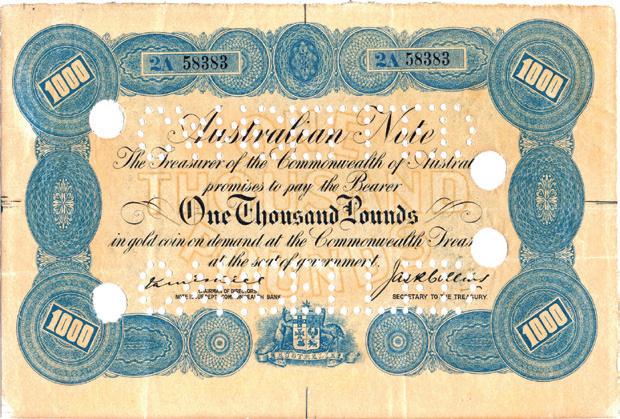 1000 2A 58383 2A 58383 1000
CANCELLED
Australian Note
The Treasurer of the Commonwealth of Austral
promises to pay the Bearer
THOUSAND
One Thousand Pounds
in gold coin on demand at the Commonwealth Treasu
at the seat of government.
Jas R Collins
CHAIRMAN OF DIRECTORS
NOTE ISSUE DEPT. COMMONWEALTH BANK
SECRETARY TO THE TREASURY.
CANCELLED
1000 AUSTRALIA 1000